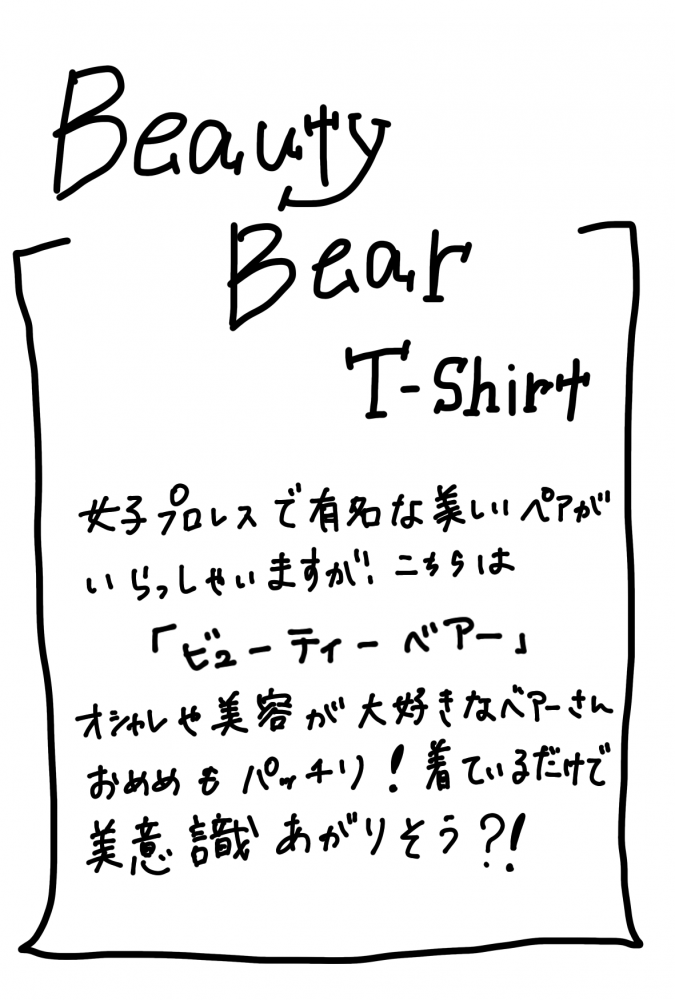 Beauty
Bear
T-Shirt
女子プロレスで有名な美しいペアが
いらっしゃいますが！こちらは
「ビューティーベアー」
オシャレや美容が大好きなベアーさん
おめめもパッチリ！着ているだけで
美意識あがりそう？！